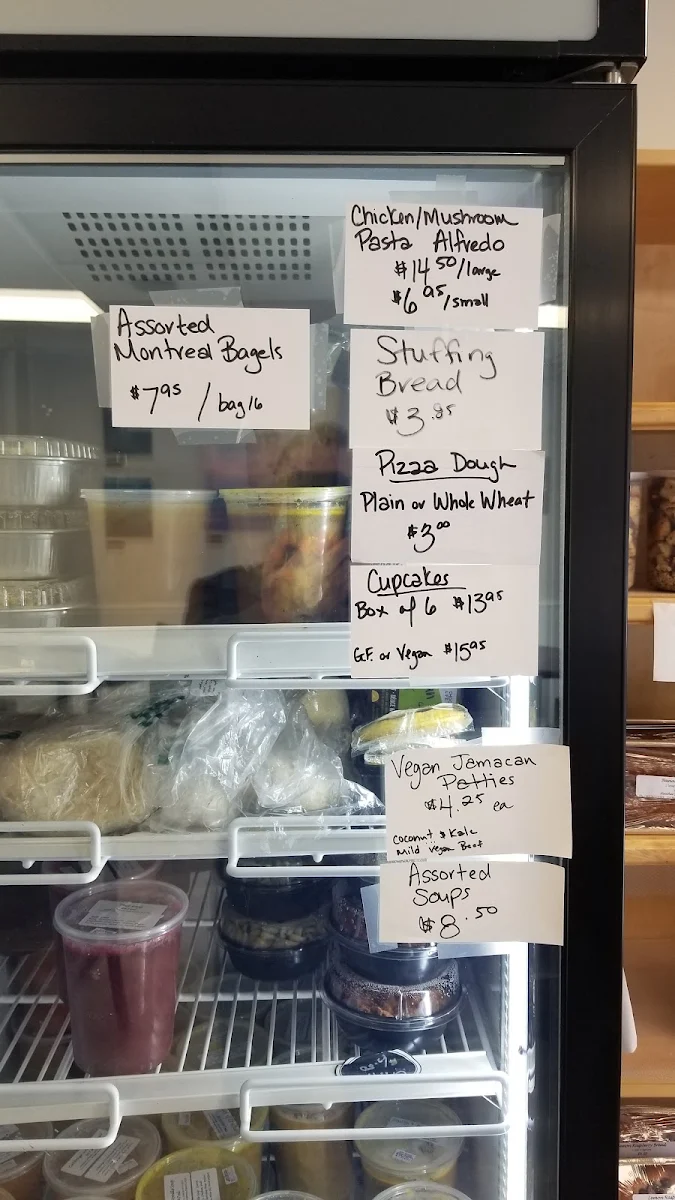 Chicken/Mushroom
Pasta Alfredo
$14 50/large
$6 95/small
Assorted
Montreal Bagels
$7 95 / bag 16
Stuffing
Bread
$3.95
Pizza Dough
Plain or Whole Wheat
$3 00
Cupcakes
Box of 6 $13 95
G.F. or Vegan $15 95
Vegan Jamacan
Patties
$4.25 ea
Coconut & Kale
Mild Vegan Beef
Assorted
Soups
$8.50